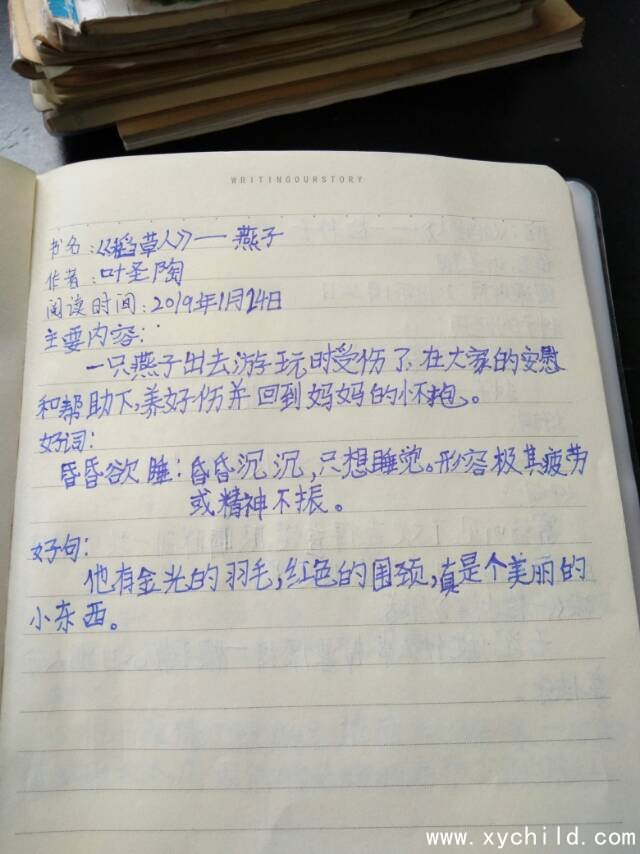 WRITINGOURSTORY
书名:《稻草人》—燕子
作者:叶圣陶
阅读时间:2019年1月24日
主要内容:
一只燕子出去游玩时受伤了,在大家的安慰
和帮助下,养好伤并回到妈妈的怀抱。
好词:
昏昏欲睡:昏昏沉沉,只想睡觉。形容极其疲劳
或精神不振。
好句:
他有金光的羽毛,红色的围颈,真是个美丽的
小东西。
www.xychild.com